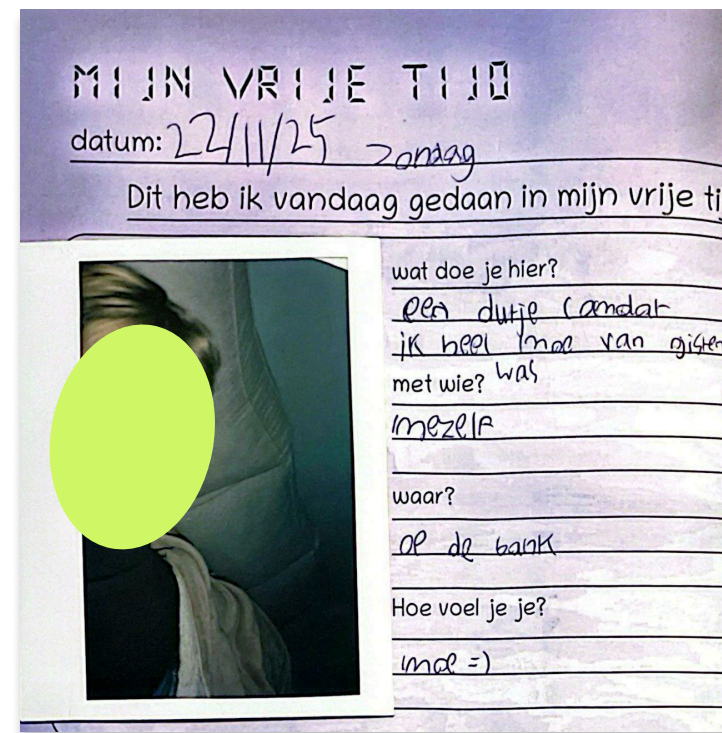 MIJN VRIJE TIJD
datum: 22/11/25 zondag
Dit heb ik vandaag gedaan in mijn vrije ti
wat doe je hier?
een dutje (omdat
ik heel moe van gister
was
met wie?
mezelf
waar?
op de bank
Hoe voel je je?
moe =)